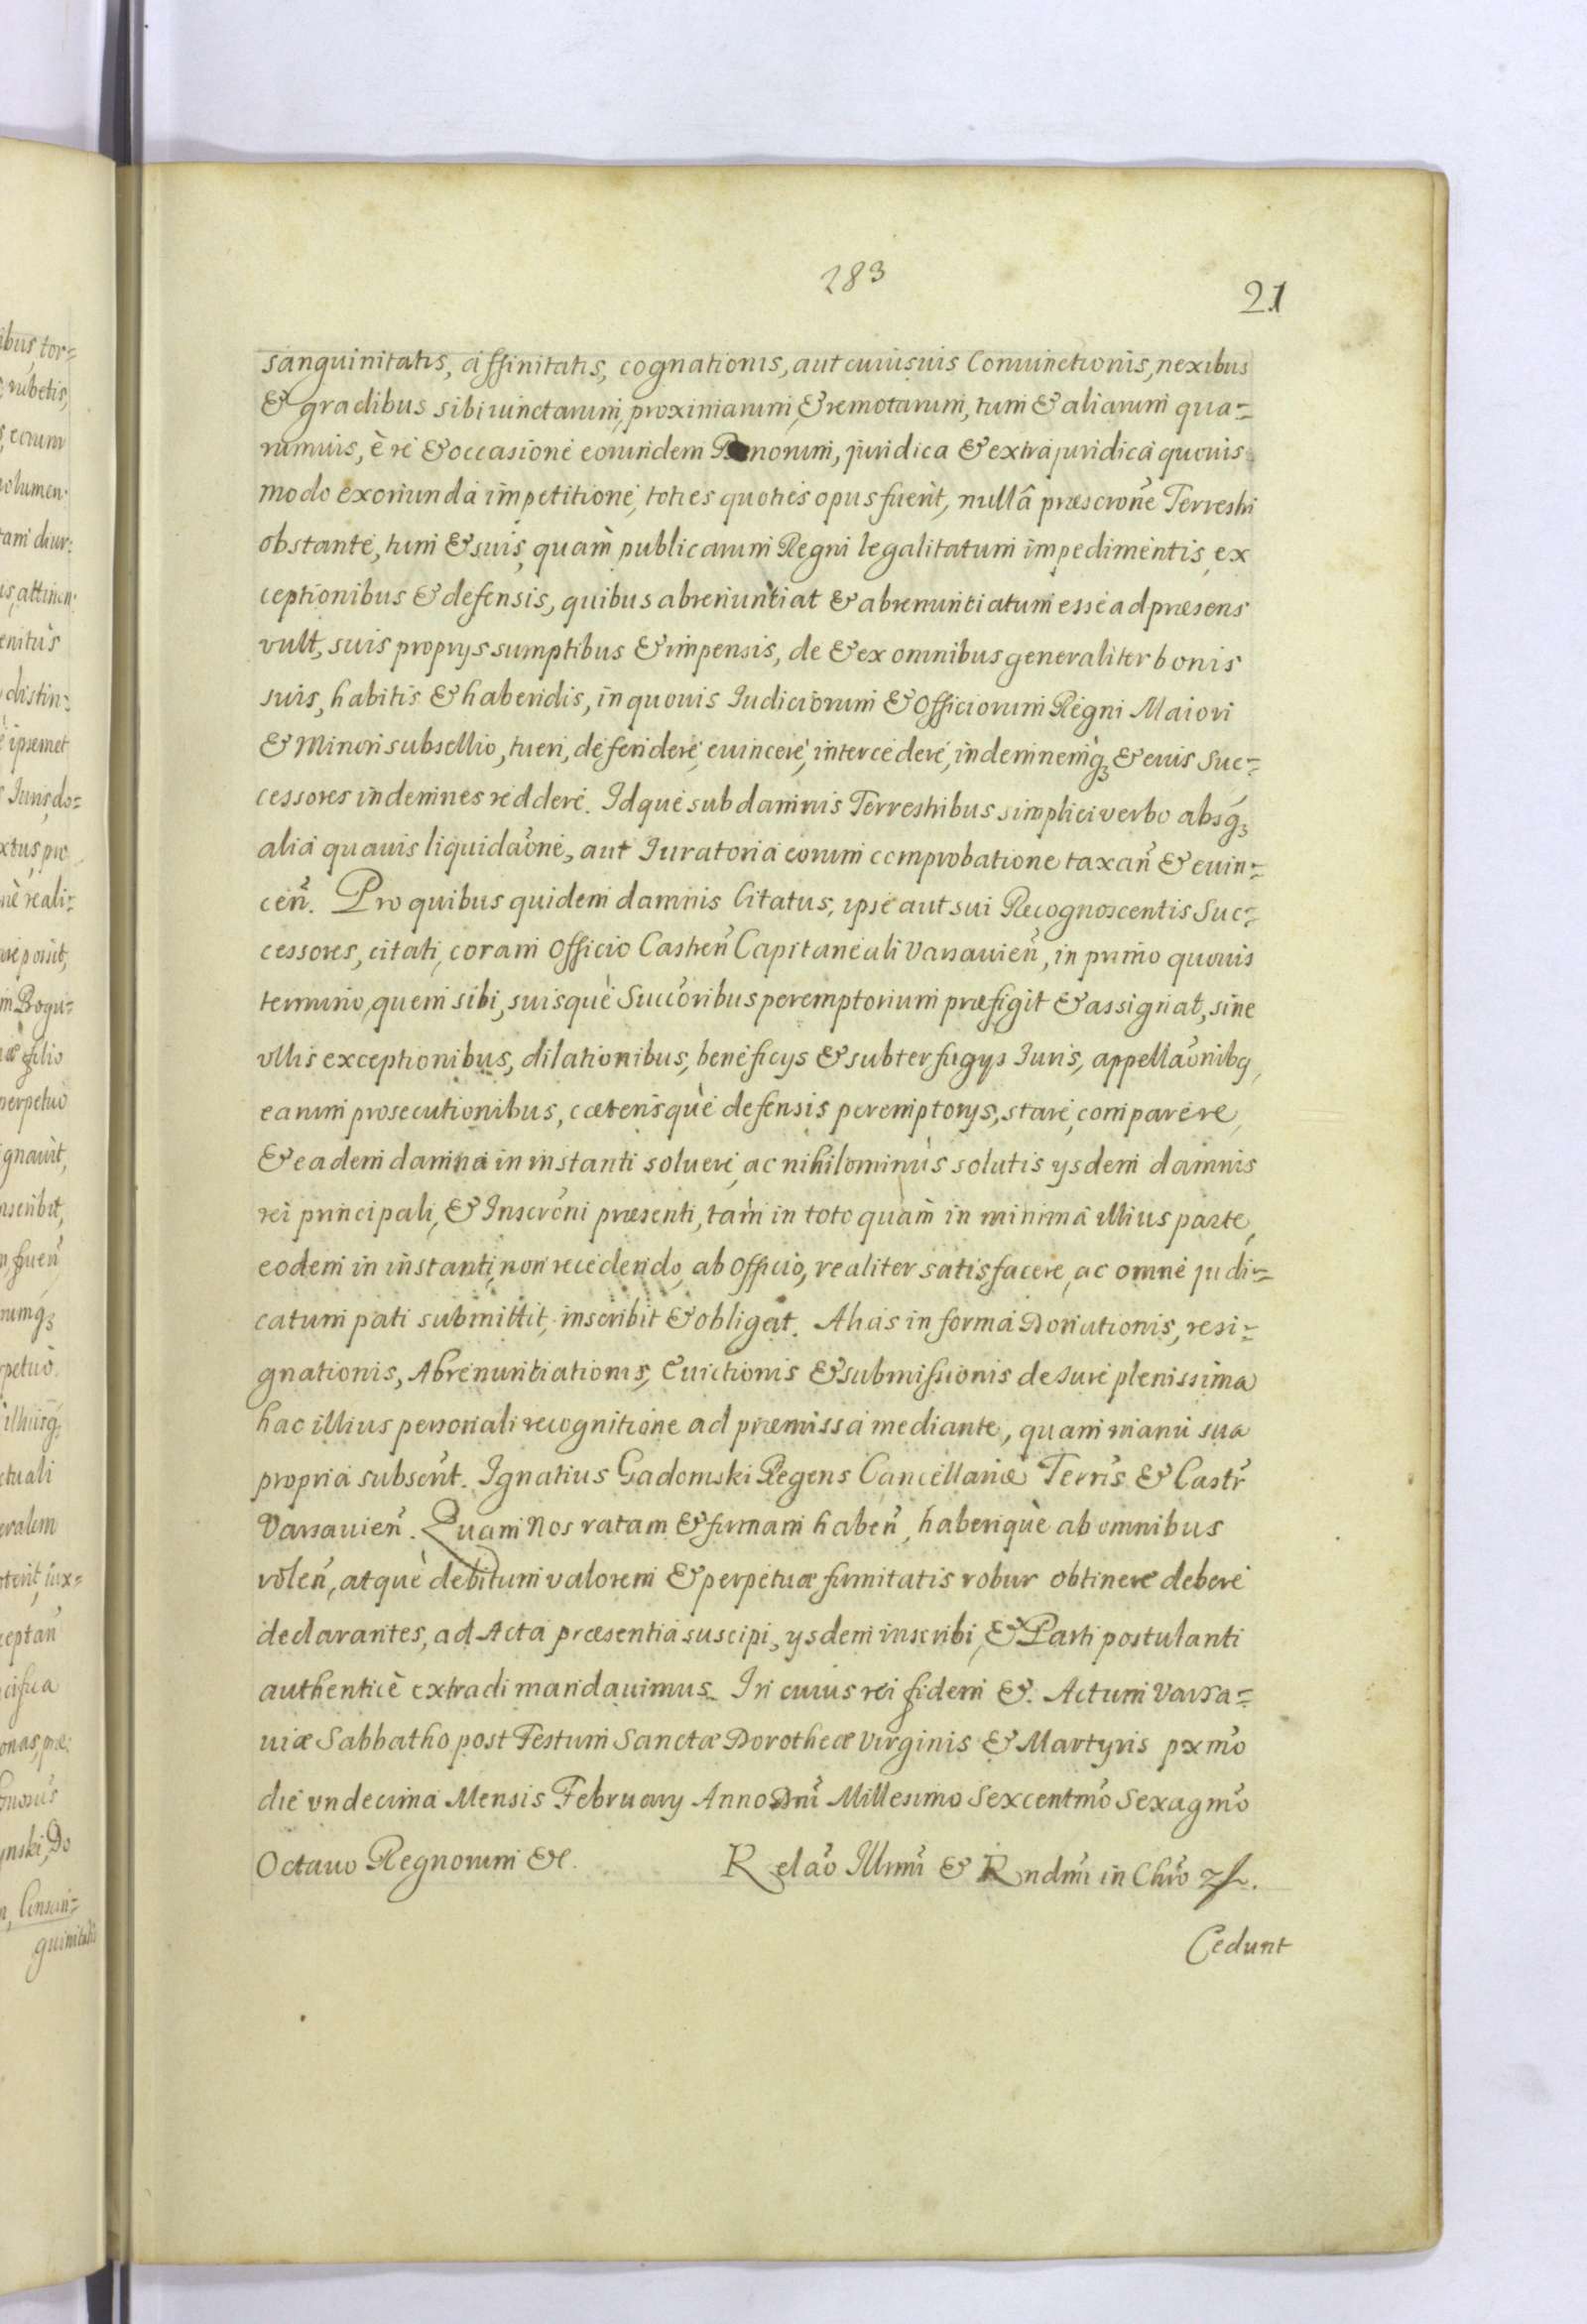 283
21
sanguinitatis, affinitatis, cognationis, aut cuiusuis Coniunctionis, nexibus
& gradibus sibi iunctarum, proximarum, & remotarum, tum & aliarum qua=
rumuis, è re & occasione eorundem Bonorum, juridica & extrajuridica quouis
modo exoriunda impetitione, toties quoties opus fuerit, nullâ præscrõne Terrestri
obstante, tum & suis, quam publicarum Regni legalitatum impedimentis, ex
ceptionibus & defensis, quibus abrenuntiat & abrenuntiatum esse ad præsens
vult, suis proprys sumptibus & impensis, de & ex omnibus generaliter bonis
suis, habitis & habendis, in quouis Iudiciorum & Officiorum Regni Maiori
& Minori subsellio, tueri, defendere, euincere, intercedere, indemnemq₃ & euis Suc=
cessores indemnes reddere. Idque sub damnis Terrestribus simplici verbo absq₃
alia quauis liquidaõne, aut Iuratoria eorum comprobatione taxan̄ & euin=
cen̄. Pro quibus quidem damnis Citatus, ipse aut sui Recognoscentis Suc=
cessores, citati, coram Officio Castren̄ Capitaneali Varsauien̄, in primo quouis
termino, quem sibi, suisquè Succõribus peremptorium præfigit & assignat, sine
vllis exceptionibus, dilationibus, beneficys & subterfugys Iuris, appellaõnibq,
earum prosecutionibus, cæterisquè defensis peremptorys, stare, comparere,
& eadem damna in instanti soluere, ac nihilominùs solutis ysdem damnis
rei principali, & Inscrõni præsenti, tam in toto quàm in minima illius parte,
eodem in instanti, non recedendo, ab Officio, realiter satisfacere, ac omne judi=
catum pati submittit, inscribit & obligat. Alias in forma Donationis, resi=
gnationis, Abrenuntiationis, Euictionis & submissionis de Iure plenissima
hac illius personali recognitione ad præmissa mediante, quam manu sua
propria subscr̃t. Ignatius Gadomski Regens Cancellariæ Terrĩs & Castr̃
Varsauien̄. Quam Nos ratam & firmam haben̄, haberiquè ab omnibus
vólen̄, atquè debitum valorem & perpetuæ firmitatis robur obtinere debere
declarantes, ad Acta præsentia suscipi, ysdem inscribi, & Parti postulanti
authenticè extradi mandauimus. In cuius rei fidem &. Actum Varsa=
uiæ Sabbatho post Festum Sanctæ Dorotheæ Virginis & Martyris pxmõ
die vndecima Mensis February Anno Dnĩ Millesimo Sexcentmõ Sexagmõ
Octauo Regnorum &c. Relaõ Illmĩ & Rndmĩ in Chrõ
Cedunt